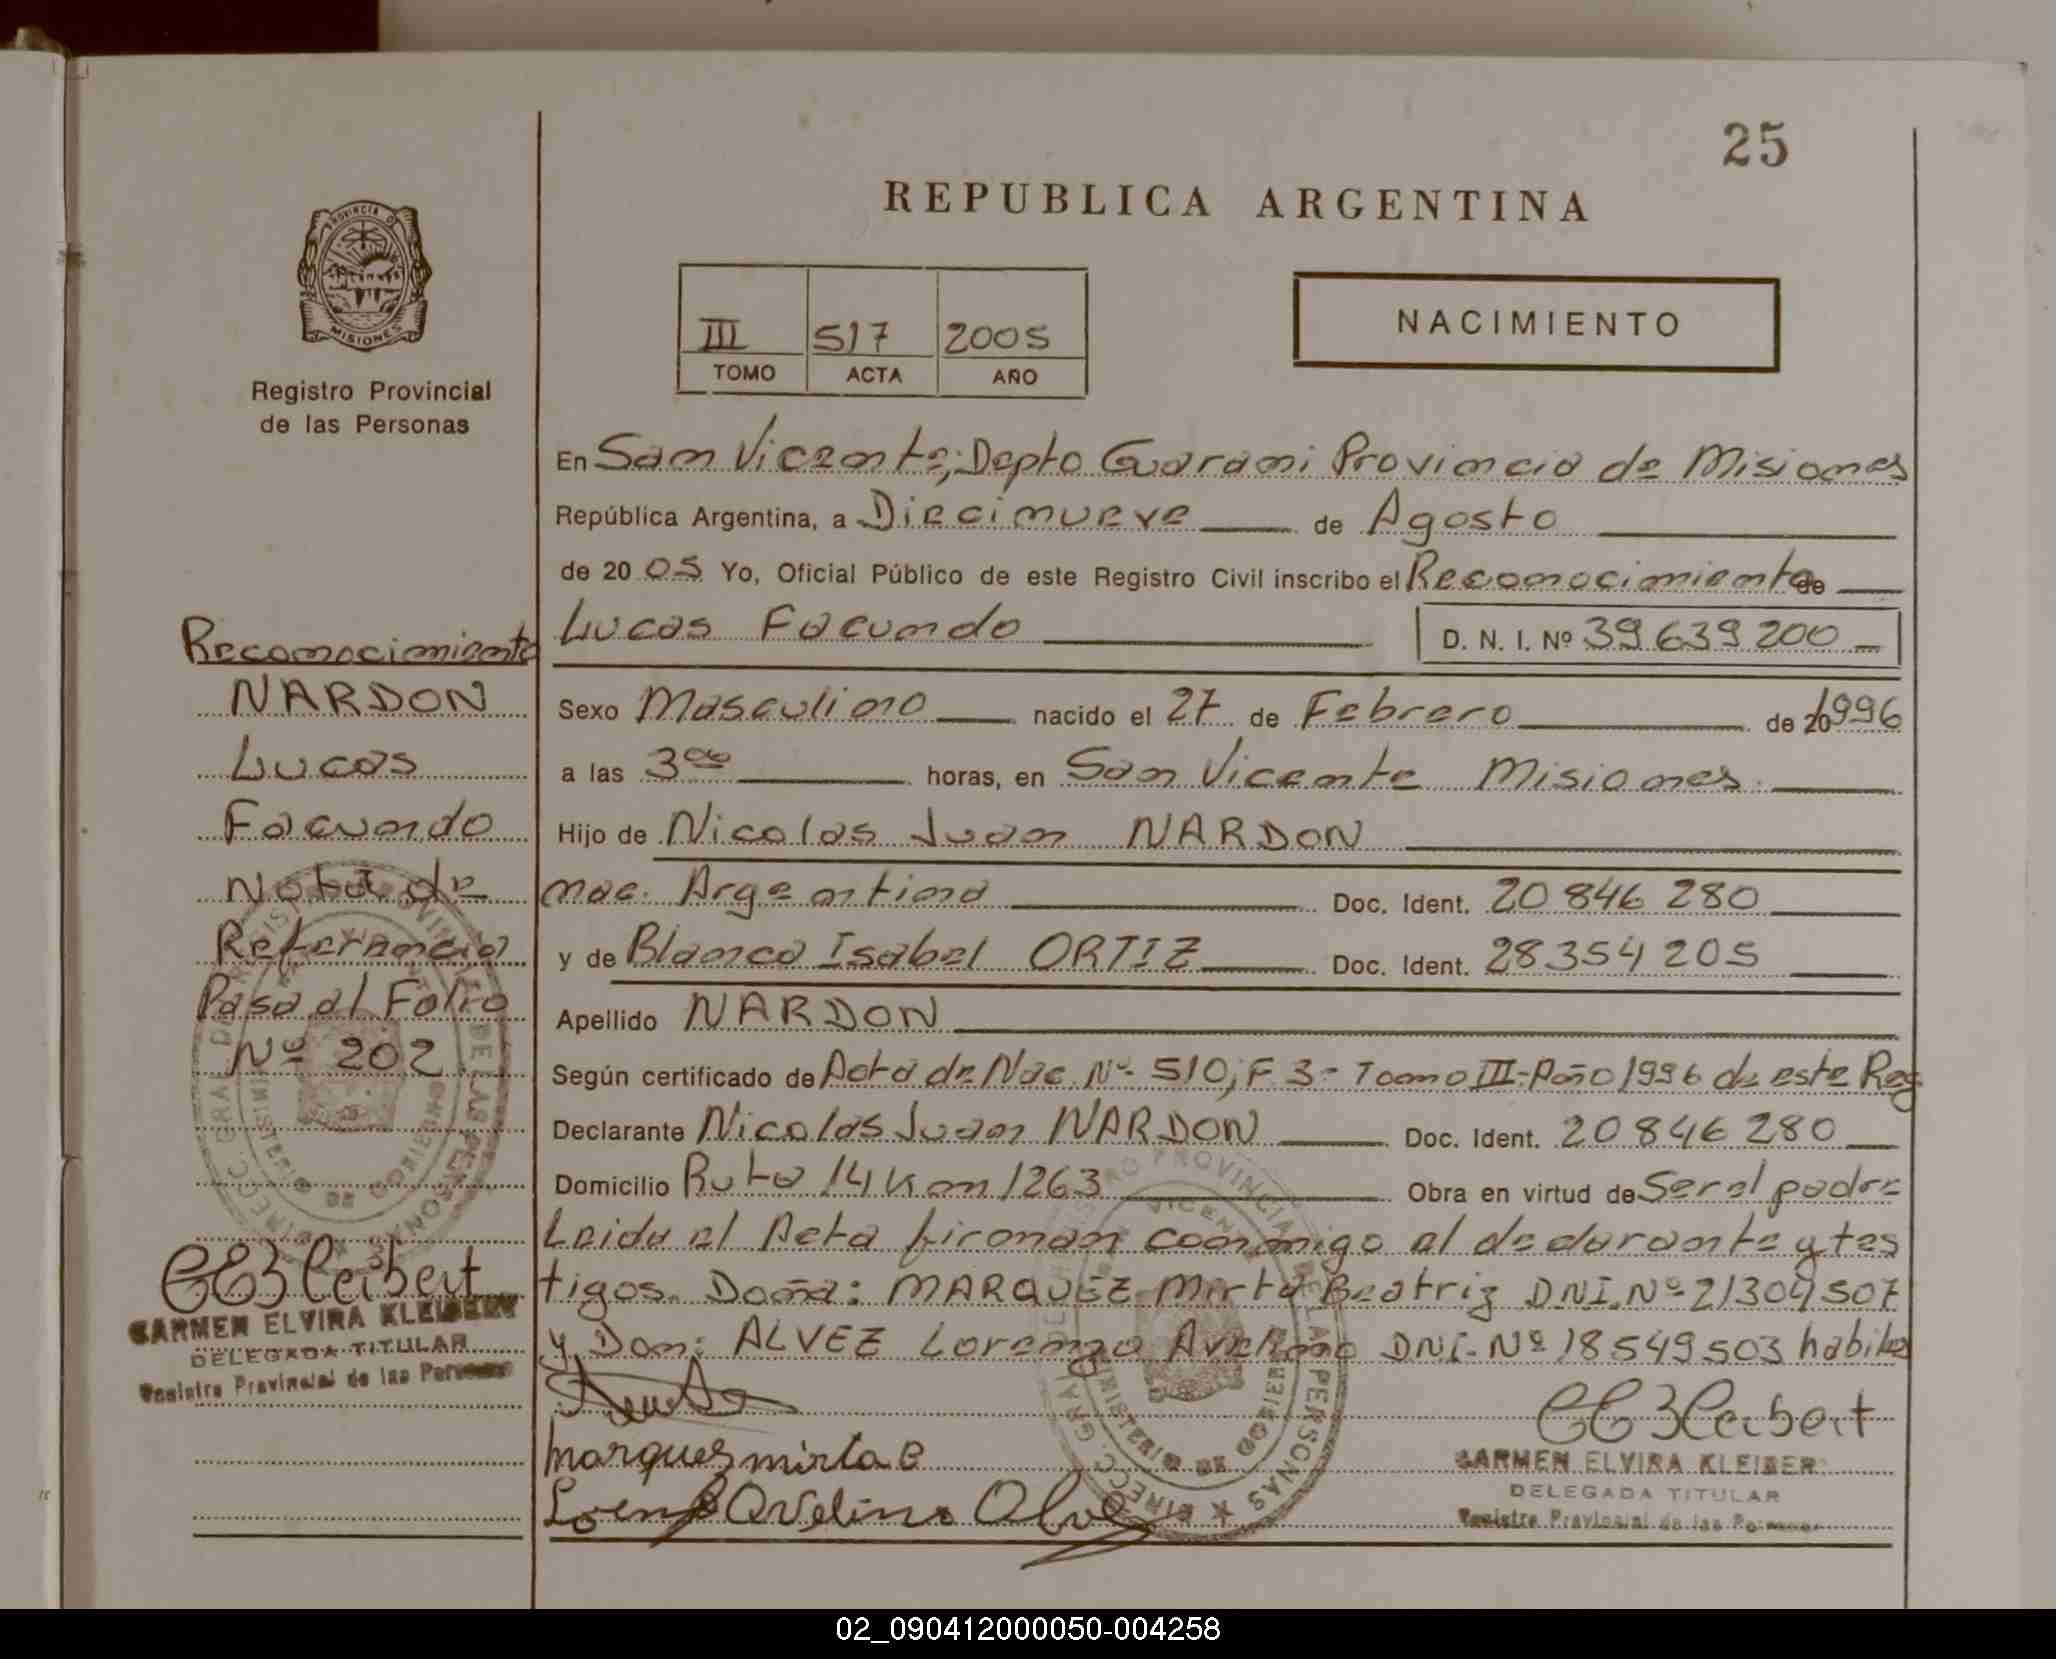 25
REPUBLICA ARGENTINA
PROVINCIA DE
MISIONES
Registro Provincial
de las Personas
III 517 2005
TOMO ACTA AÑO
NACIMIENTO
En San Vicente; Depto Guarani Provincia de Misiones
República Argentina, a Diecinueve de Agosto
de 20 05 Yo, Oficial Público de este Registro Civil inscribo el Reconocimiento de
Lucas Facundo D. N. I. Nº 39.639.200
Sexo Masculino nacido el 27 de Febrero de 20 1996
a las 3 00 horas, en San Vicente Misiones
Hijo de Nicolas Juan NARDON
nac. Argentina Doc. Ident. 20 846 280
y de Blanca Isabel ORTIZ Doc. Ident. 28354 205
Apellido NARDON
Según certificado de Acta de Nac. Nº 510; F 3- Tomo III- Año 1996 de este Reg
Declarante Nicolas Juan NARDON Doc. Ident. 20 846 280
Domicilio Ruta 14 Km 1263 Obra en virtud de Ser el padre
Leida el Acta firman conmigo el declarante y tes
tigos. Doña: MARQUEZ Mirta Beatriz DNI. Nº 21304507
y Don: ALVEZ Lorenzo Avelino DNI- Nº 18549503 habiles
Marques mirta B
Lorenzo Avelino Alve
CARMEN ELVIRA KLEIBERT
DELEGADA TITULAR
Registro Provincial de las Personas
Reconocimiento
NARDON
Lucas
Facundo
Nota de
Referencia
Pasa al Folio
Nº 202
CARMEN ELVIRA KLEIBERT
DELEGADA TITULAR
Registro Provincial de las Personas
02_090412000050-004258